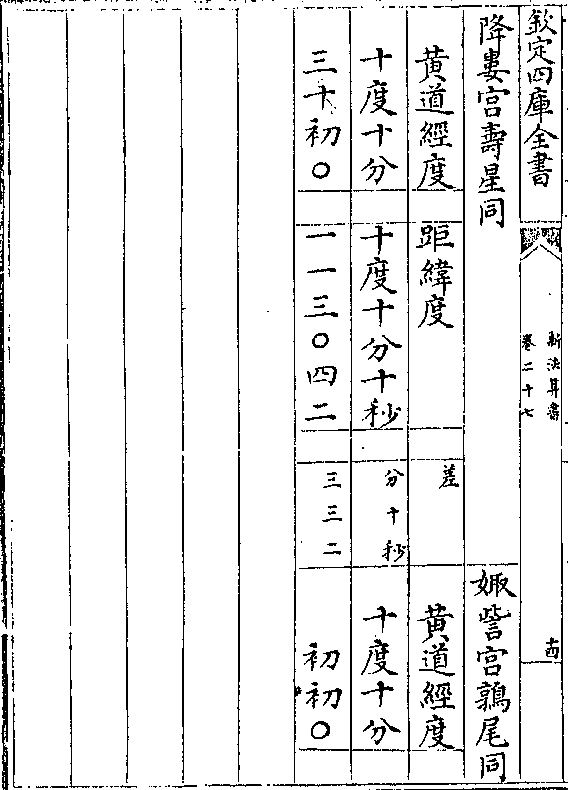 欽定四庫全書
新法算書
卷二十七
十四
降婁宮壽星同
娵訾宮鶉尾同
黃道經度
距緯度
差
黃道經度
十度十分
十度十分十秒
分十秒
十度十分
三十初〇
一一三〇四二
三三二
初初〇